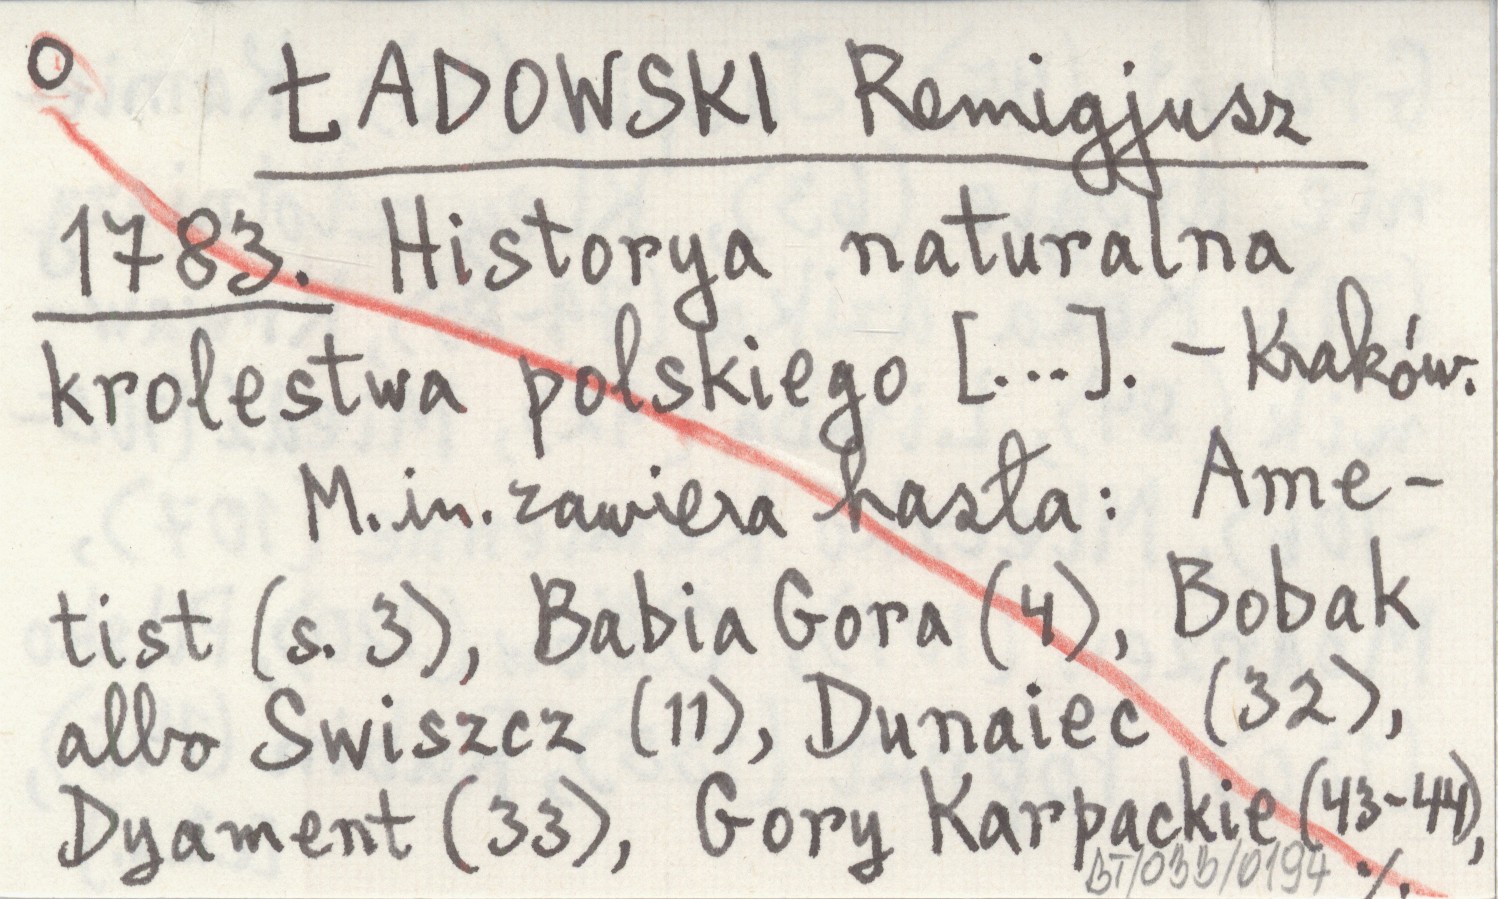 O ŁADOWSKI Remigjusz
1783. Historya naturalna
krolestwa polskiego [...]. - Kraków.
M.in. zawiera hasła: Ame-
tist (s. 3), Babia Gora (4), Bobak
albo Swiszcz (11), Dunaiec (32),
Dyament (33), Gory Karpackie (43-44),
BT/033/0194 ./.